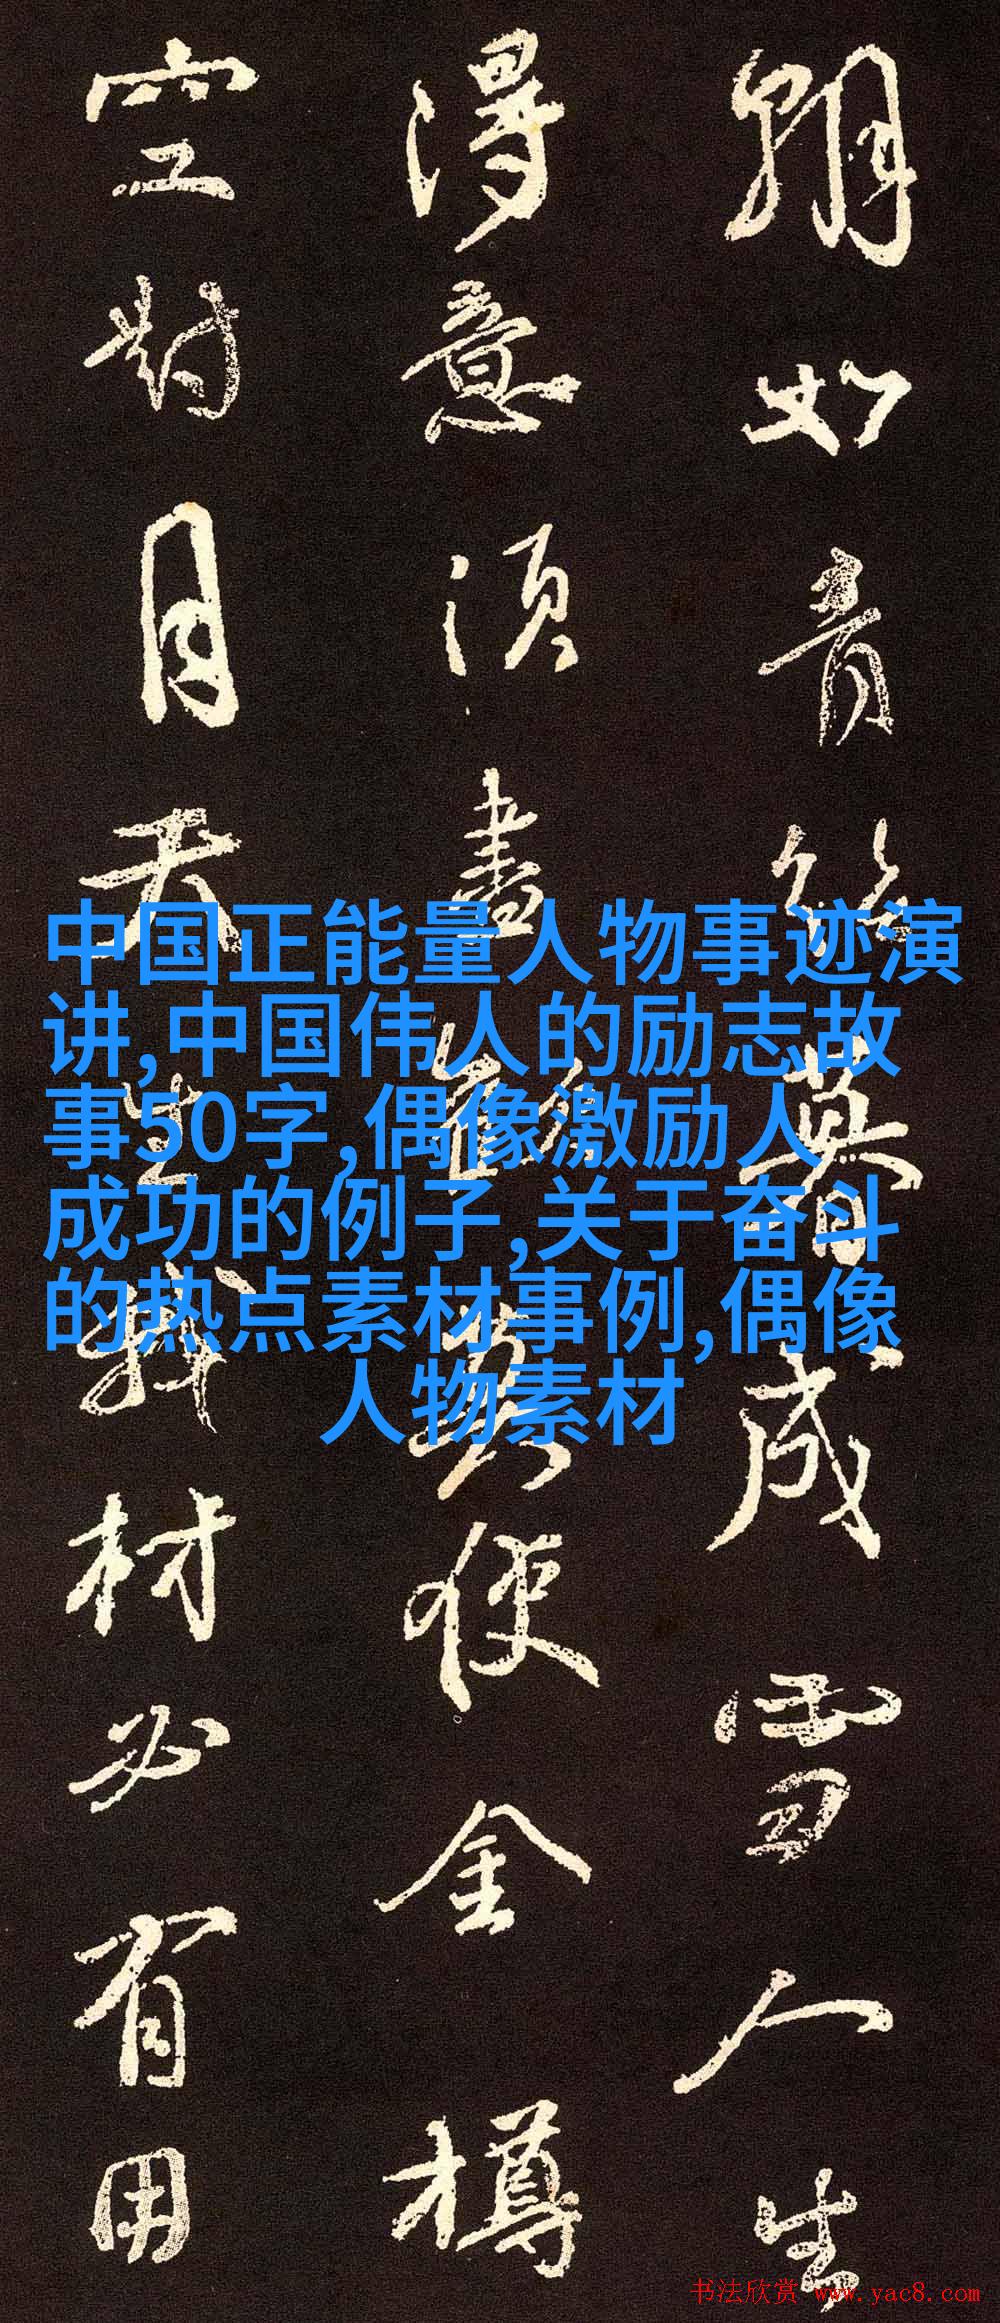 朝如青絲暮成雪人生
得意須盡歡莫使金樽
空對月天生我材必有用
中国正能量人物事迹演
讲,中国伟人的励志故
事50字,偶像激励人
成功的例子,关于奋斗
的热点素材事例,偶像
人物素材
书法欣赏 www.yac8.com